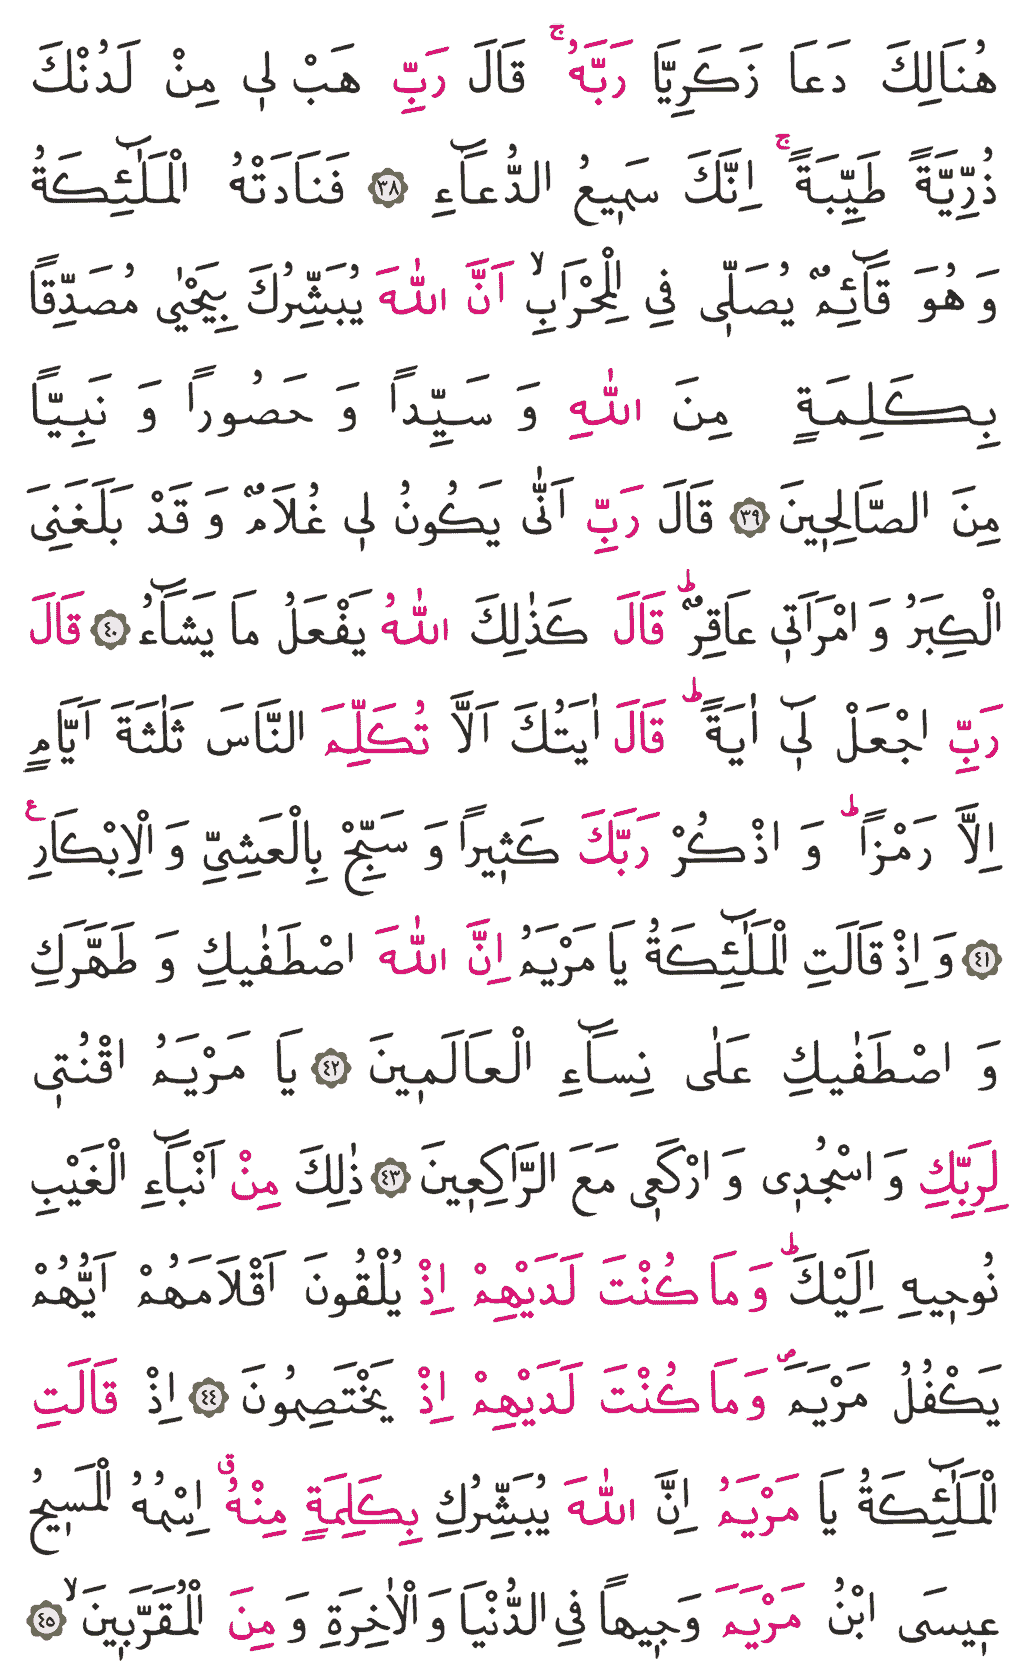 هُنَالِكَ دَعَا زَكَرِيَّا رَبَّهُۚ قَالَ رَبِّ هَبْ لٖى مِنْ لَدُنْكَ
ذُرِّيَّةً طَيِّبَةًۚ اِنَّكَ سَمٖيعُ الدُّعَٓاءِ ﴿٣٨﴾ فَنَادَتْهُ الْمَلٰٓئِكَةُ
وَ هُوَ قَٓائِمٌ يُصَلّٖى فِى الْمِحْرَابِۙ اَنَّ اللّٰهَ يُبَشِّرُكَ بِيَحْيٰى مُصَدِّقًا
بِكَلِمَةٍ مِنَ اللّٰهِ وَ سَيِّداً وَ حَصُوراً وَ نَبِيًّا
مِنَ الصَّالِحٖينَ ﴿٣٩﴾ قَالَ رَبِّ اَنّٰى يَكُونُ لٖى غُلَامٌ وَ قَدْ بَلَغَنِىَ
الْكِبَرُ وَ امْرَاَتٖى عَاقِرٌؕ قَالَ كَذٰلِكَ اللّٰهُ يَفْعَلُ مَا يَشَٓاءُ ﴿٤٠﴾ قَالَ
رَبِّ اجْعَلْ لٖٓى اٰيَةًؕ قَالَ اٰيَتُكَ اَلَّا تُكَلِّمَ النَّاسَ ثَلٰثَةَ اَيَّامٍ
اِلَّا رَمْزاًؕ وَ اذْكُرْ رَبَّكَ كَثٖيراً وَ سَبِّحْ بِالْعَشِىِّ وَ الْاِبْكَارِࣖ
﴿٤١﴾ وَ اِذْ قَالَتِ الْمَلٰٓئِكَةُ يَا مَرْيَمُ اِنَّ اللّٰهَ اصْطَفٰيكِ وَ طَهَّرَكِ
وَ اصْطَفٰيكِ عَلٰى نِسَٓاءِ الْعَالَمٖينَ ﴿٤٢﴾ يَا مَرْيَمُ اقْنُتٖى
لِرَبِّكِ وَ اسْجُدٖى وَ ارْكَعٖى مَعَ الرَّاكِعٖينَ ﴿٤٣﴾ ذٰلِكَ مِنْ اَنْبَٓاءِ الْغَيْبِ
نُوحٖيهِ اِلَيْكَؕ وَ مَا كُنْتَ لَدَيْهِمْ اِذْ يُلْقُونَ اَقْلَامَهُمْ اَيُّهُمْ
يَكْفُلُ مَرْيَمَࣕ وَ مَا كُنْتَ لَدَيْهِمْ اِذْ يَخْتَصِمُونَ ﴿٤٤﴾ اِذْ قَالَتِ
الْمَلٰٓئِكَةُ يَا مَرْيَمُ اِنَّ اللّٰهَ يُبَشِّرُكِ بِكَلِمَةٍ مِنْهُࣗ اِسْمُهُ الْمَسٖيحُ
عٖيسَى ابْنُ مَرْيَمَ وَجٖيهاً فِى الدُّنْيَا وَ الْاٰخِرَةِ وَ مِنَ الْمُقَرَّبٖينَۙ ﴿٤٥﴾